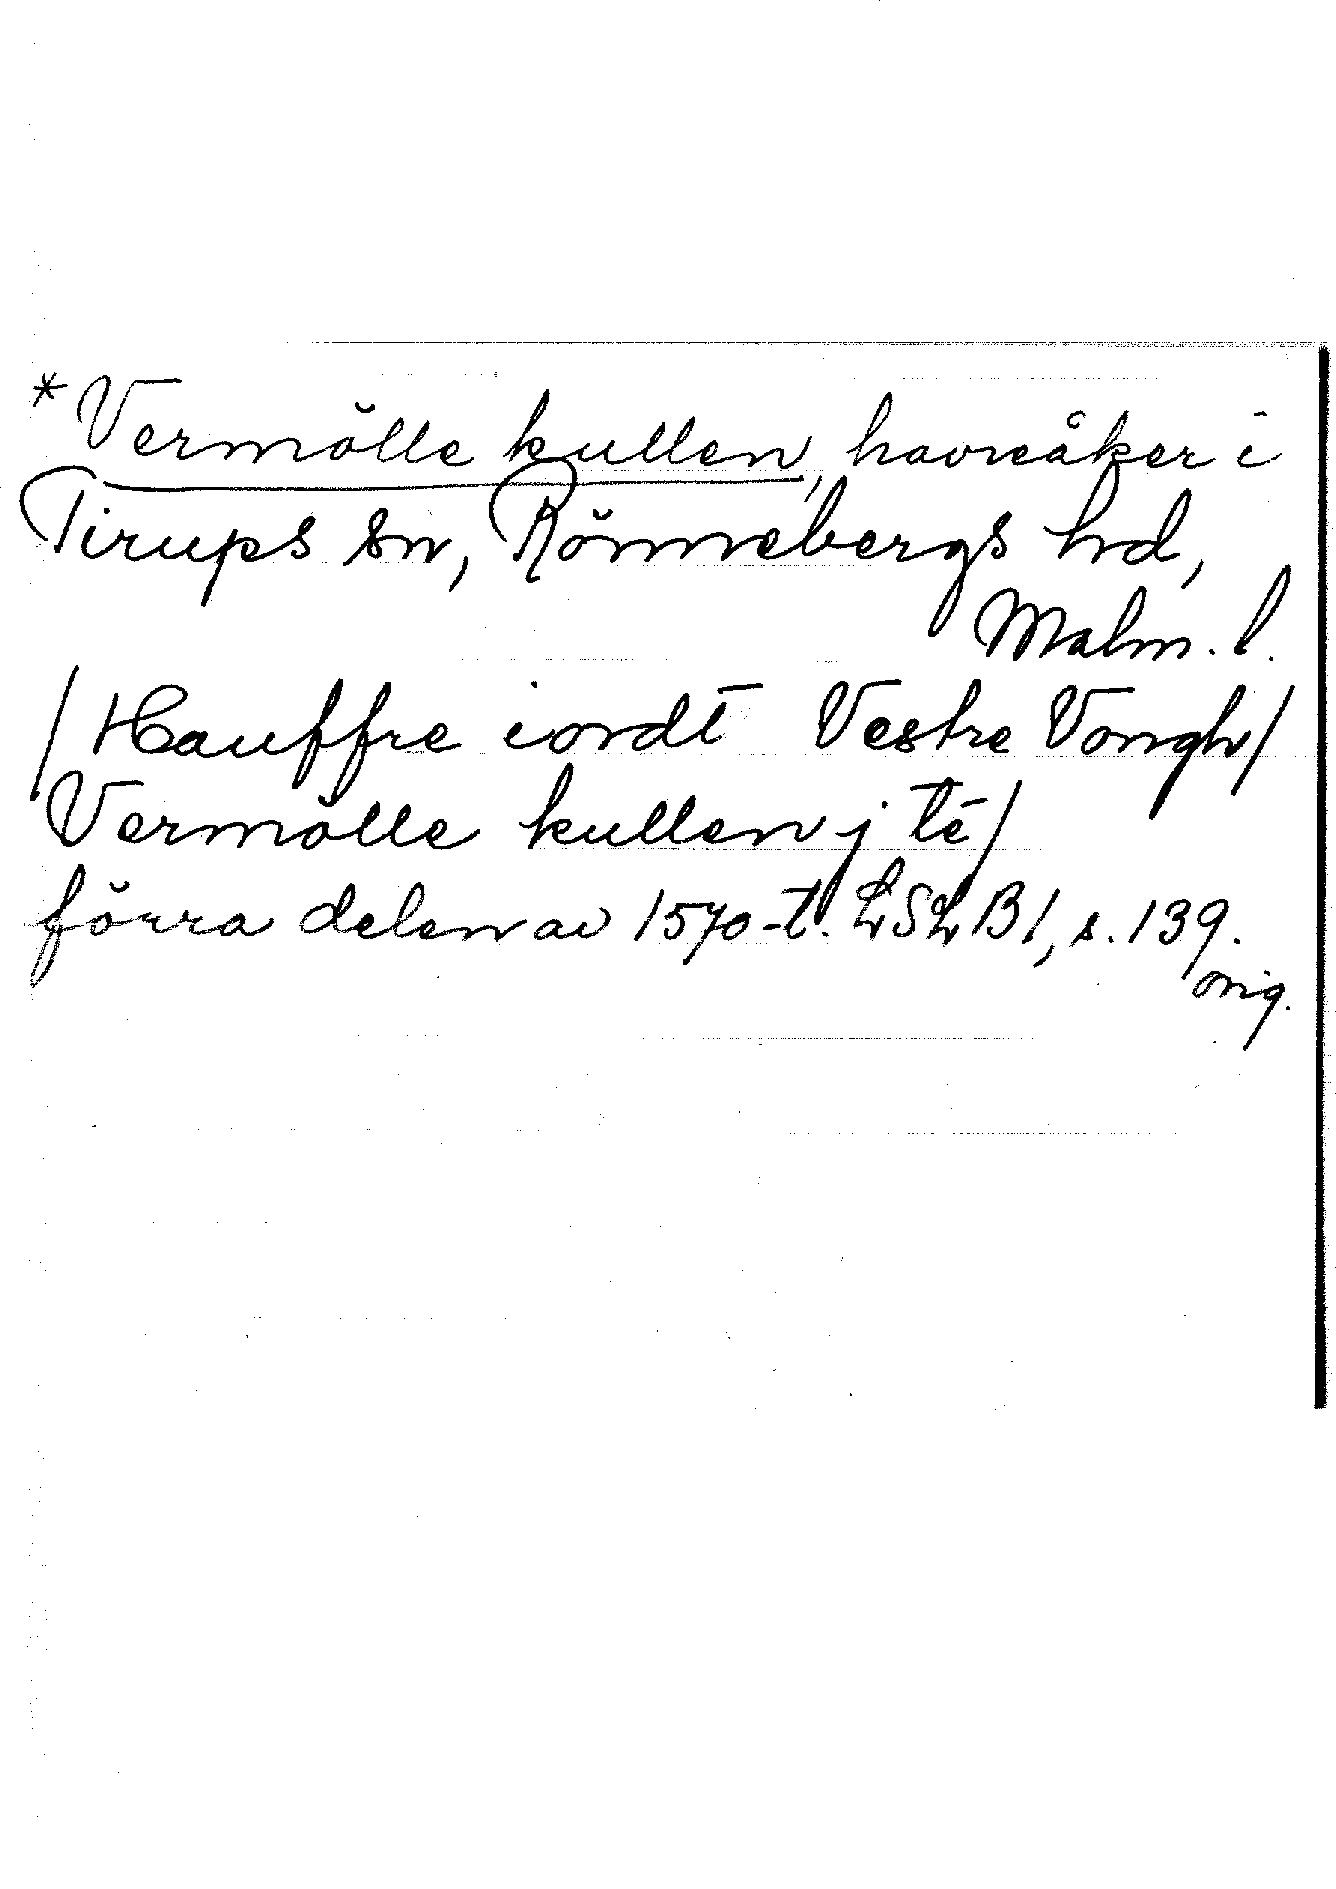 *Vermölle kullen, havreåker i
Tirups sn, Rönnebergs hd,
Malm. l.
/Hauffre iordt Vestre Vongh/
Vermölle kullen j tē/
förra delen av 1570-t. LSLB1, s. 139.
orig.